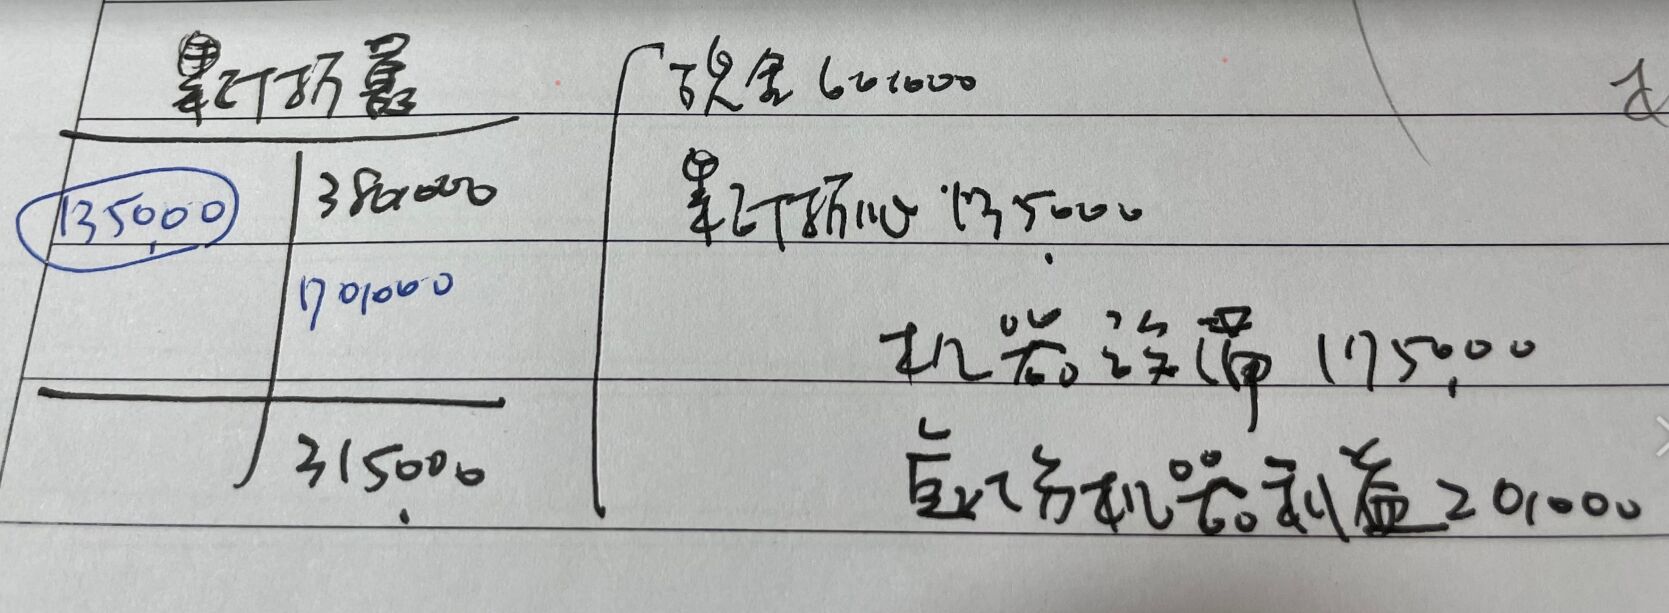 累計折舊
135,000
380,000
170,000
315,000
現金 60,000
累計折 135,000
机器設備 175,000
机器利益 20,000